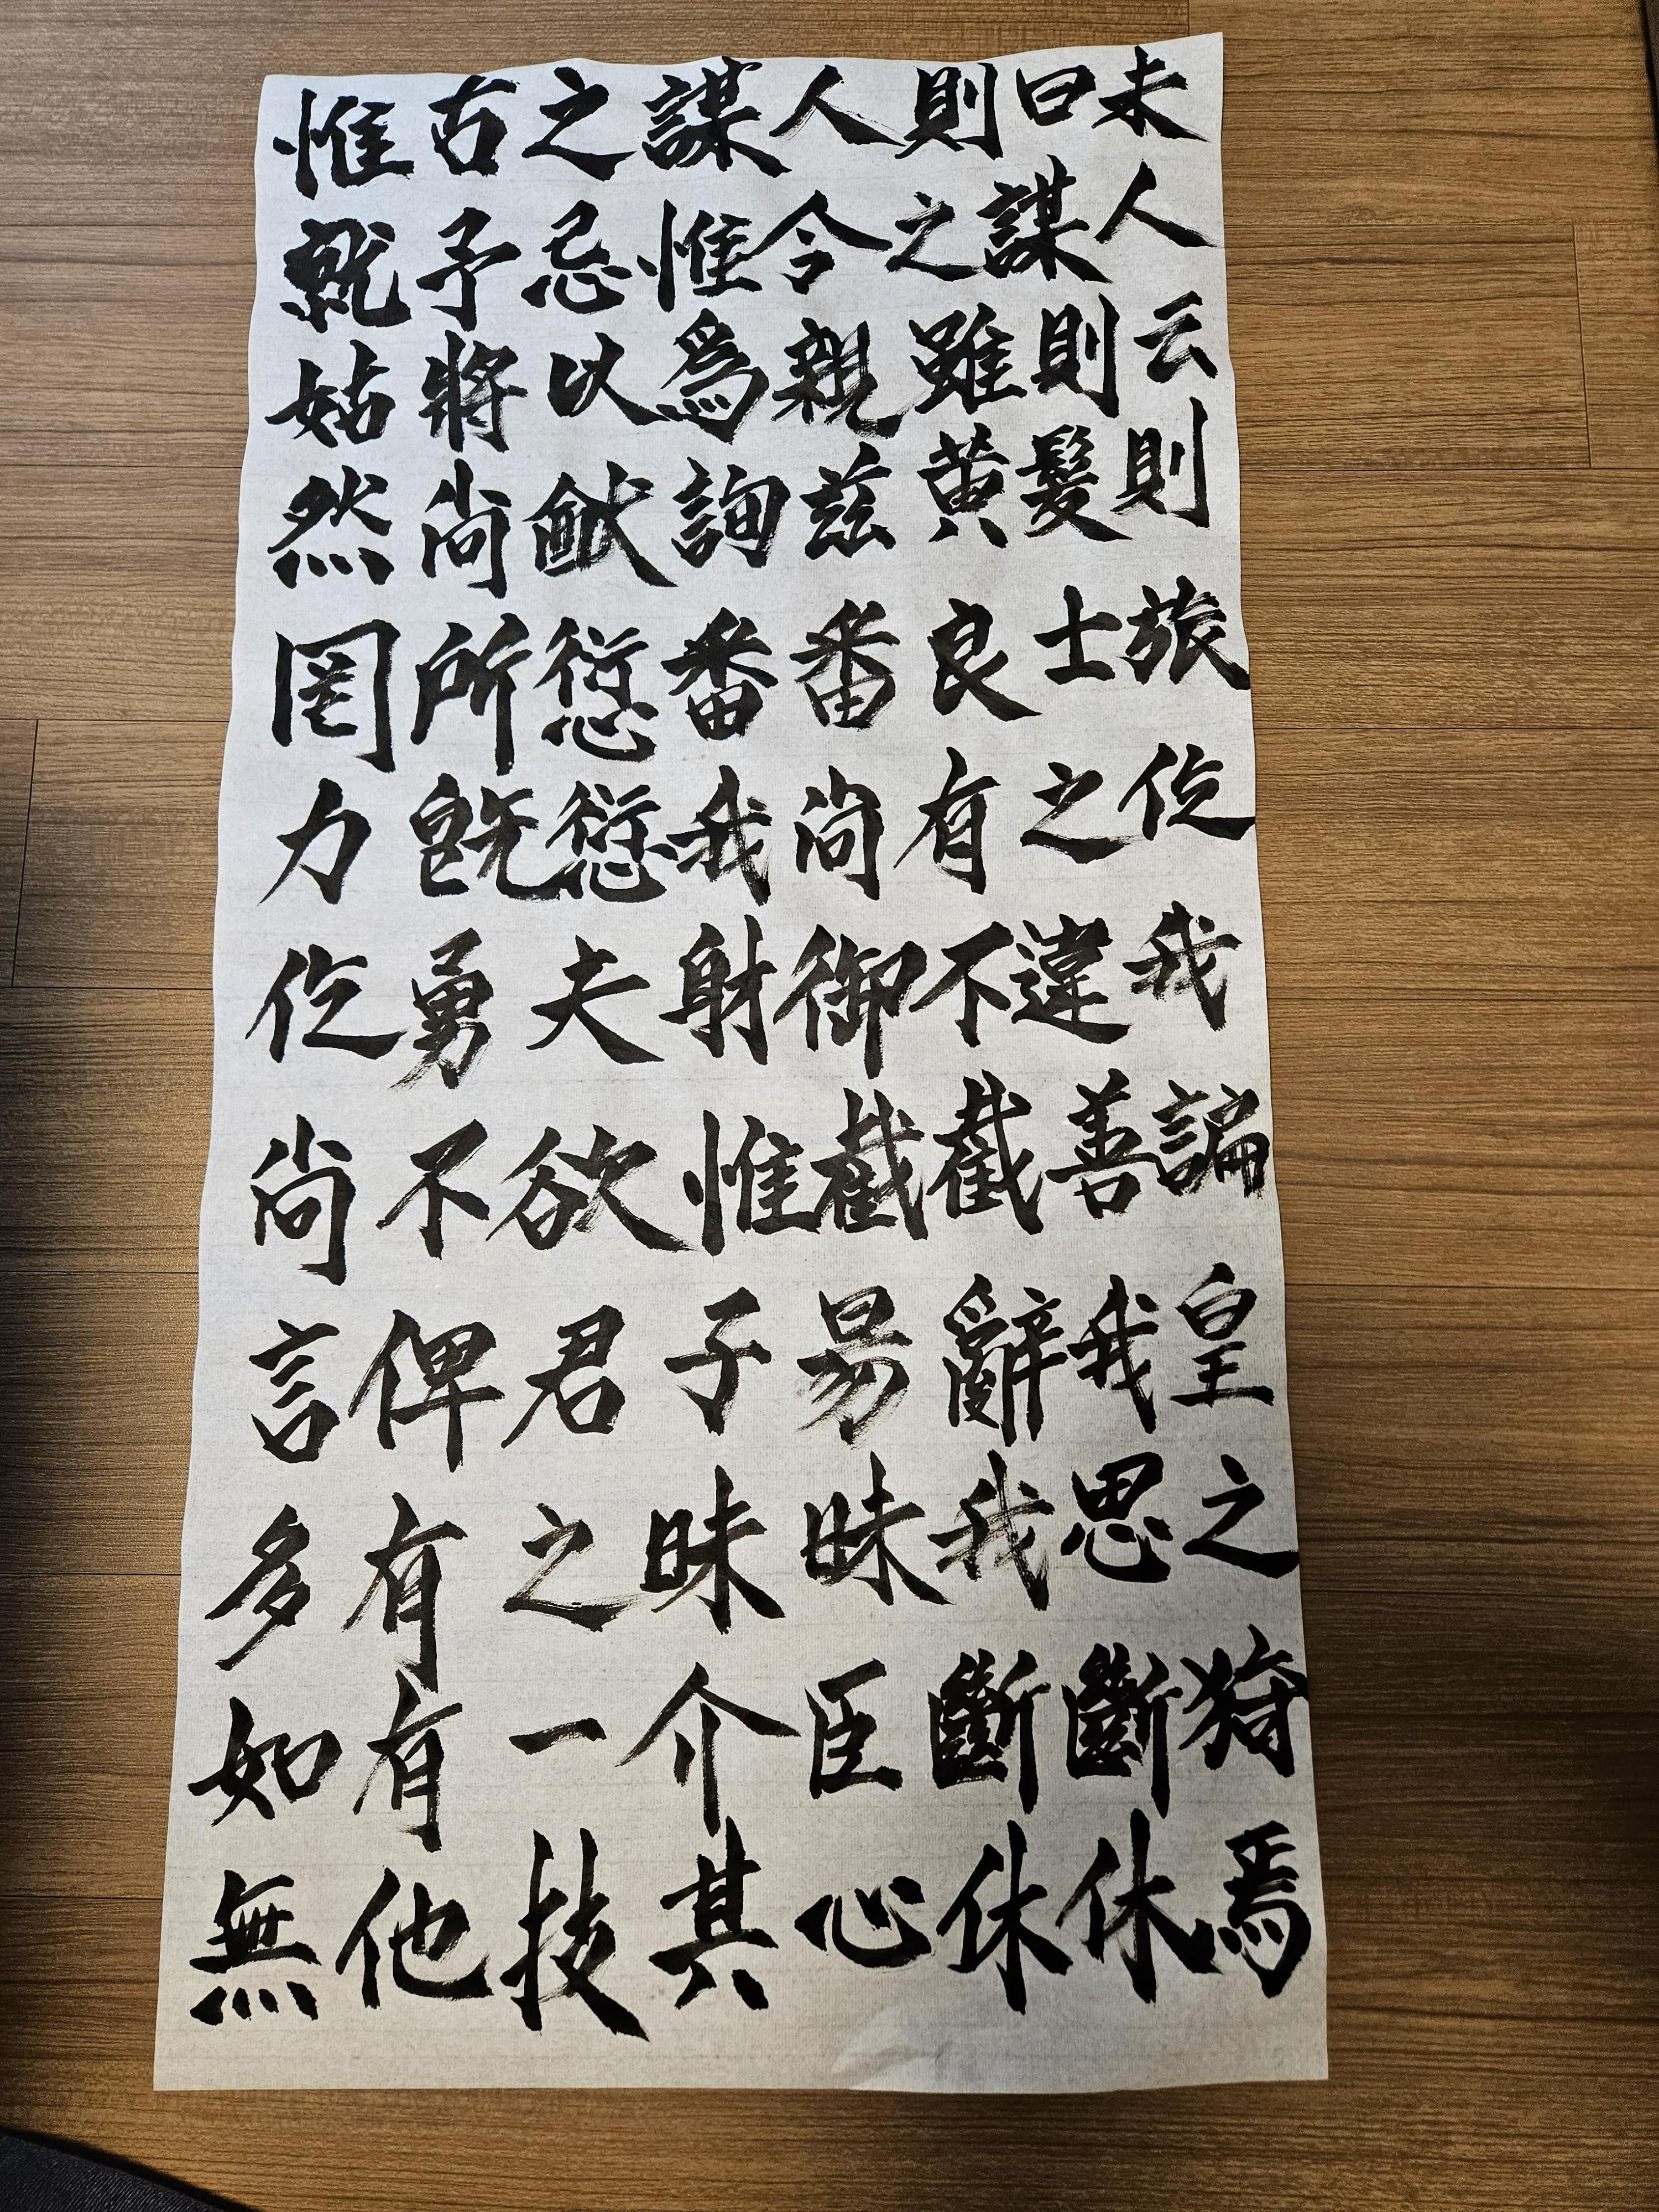 惟古之謀人則曰未
就予忌惟今之謀人
姑將以爲親雖則云
然尚猷詢茲黃髮則
罔所愆番番良士旅
力既愆我尚有之仡
仡勇夫射御不違我
尚不欲惟截截善諞
言俾君子易辭我皇
多有之昧昧我思之
如有一介臣斷斷猗
無他技其心休休焉